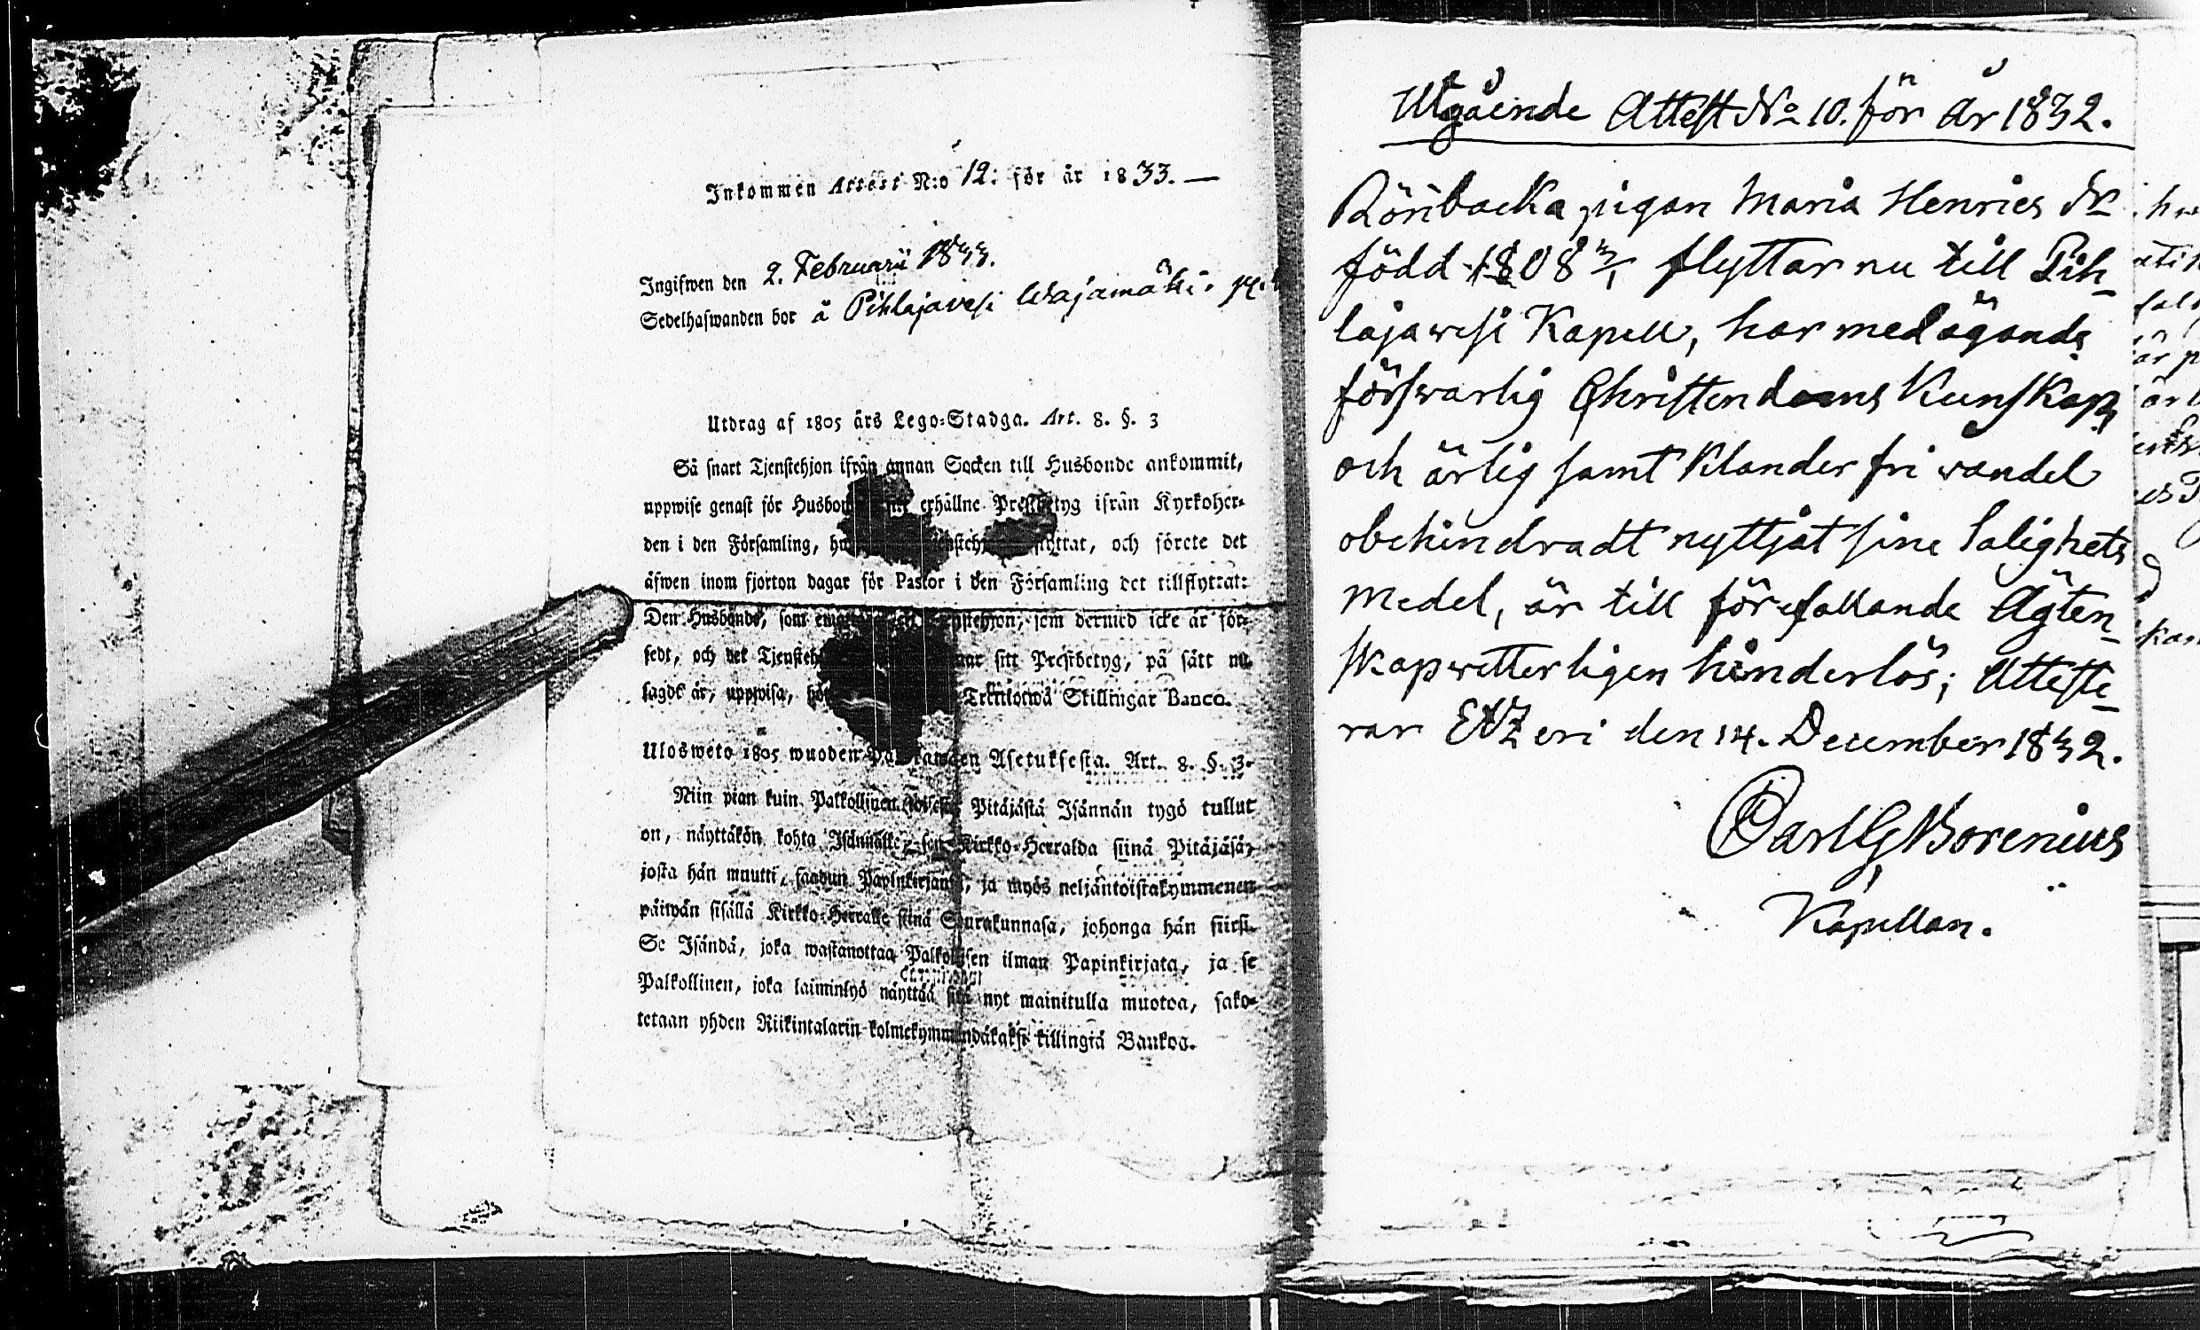 Inkommen Attest N:o 12: för år 1833. —
Ingifwen den 2. Februarii 1833.
Sedelhafwanden bor å Pihlajavesi Wajamäki.
Utdrag af 1805 års Lego-Stadga. Art. 8. §. 3
Så snart Tjenstehjon ifrån annan Socken till Husbonde ankommit,
uppwise genast för Husbonden erhållne Prestbetyg ifrån Kyrkoher-
den i den Församling, flyttat, och förete det
äfwen inom fjorton dagar för Pastor i den Församling det tillflyttat:
Den Husbonde, som Tjenstehjon, som dermed icke är för-
sedt, och det Tjenstehjon sitt Prestbetyg, på sätt nu
sagdt är, uppwisa, Trettiotwå Skillingar Banco.
Ulosweto 1805 wuoden Palkawäen Asetuksesta. Art. 8. §. 3.
Niin pian kuin Palkollinen toisesta Pitäjästä Isännän tygö tullut
on, näyttäkön kohta Isännälle sen Kirkko-Herralda siinä Pitäjäsä,
josta hän muutti, saadun Papinkirjansa, ja myös neljäntoistakymmenen
päiwän sisällä Kirkko-Herralle siinä Seurakunnasa, johonga hän siirsi.
Se Isändä, joka wastanottaa Palkollisen ilman Papinkirjata, ja se
Palkollinen, joka laiminlyö näyttää sitä nyt mainitulla muotoa, sako-
tetaan yhden Riikintalarin kolmekymmendäkaksi killingiä Bankoa.
Utgående Attest No 10. för år 1832.
pigan Maria Henrics dr
född 1808 flyttar nu till Pih-
lajawesi Kapell, har med ägande
förswarlig Christendoms Kunskap
och ärlig samt Klander fri wandel
obehindradt nyttjat sine Salighets
medel, är till förefallande Ägten-
skap wetterligen hinderlös; Atteste-
rar Etzeri den 14. December 1832.
Carl G Borenius
Kapellan.